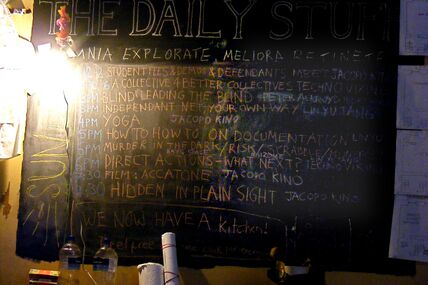 THE DAILY STUFF
OMNIA EXPLORATE MELIORA RETINETE
STUDENT FILES & DEMOS & DEFENDANTS MEET JACOPO
A COLLECTIVE 4 BETTER COLLECTIVES TECHNOVIKING
BLIND LEADING THE BLIND PETER
INDEPENDANT NET YOUR OWN WAY LIN YUTANG
4PM YOGA JACOPO KINO
5PM HOW TO HOW TO ON DOCUMENTATION LIN YU
PM MURDER IN THE DARK/RISK/SCRABBLE/
PM DIRECT ACTIONS - WHAT NEXT? TECHNOVIKING
30 FILM: ACCATONE - JACOPO KINO
30 HIDDEN IN PLAIN SIGHT JACOPO KINO
SUN
WE NOW HAVE A Kitchen!
Feel free